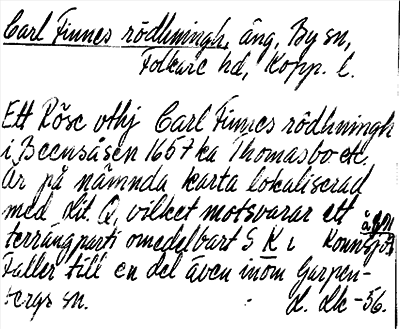 Carl Finnes rödhningh, äng, By sn,
Folkare hd, Kopp. l.
Ett Röse vthj Carl Finnes rödhningh
i Beensåsen 1657 ka Thomasbo etc.,
Är på nämnda karta lokaliserad
med Lit. Q, vilket motsvarar ett
terrängparti omedelbart S K i
Faller till en del även inom Garpen-
bergs sn. -56.